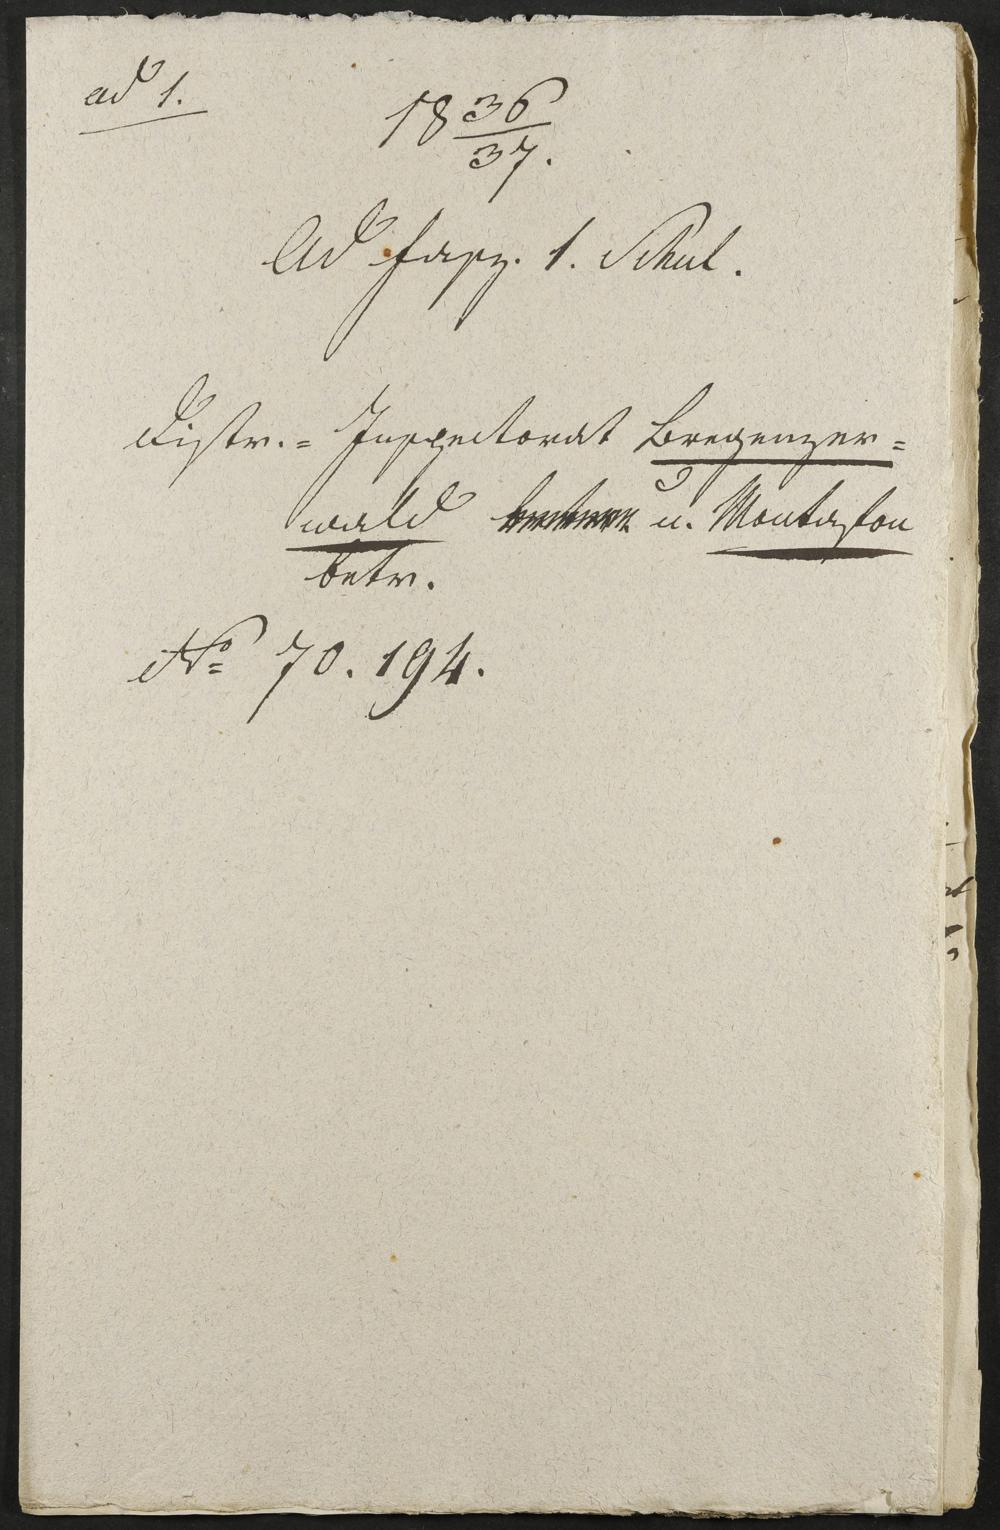 ad 1.
18 36/37.
Ad Fasz. 1. Schul.
Distr.= Inspectorat Bregenzer=
wald u. Montafon
betr.
No. 70. 194.